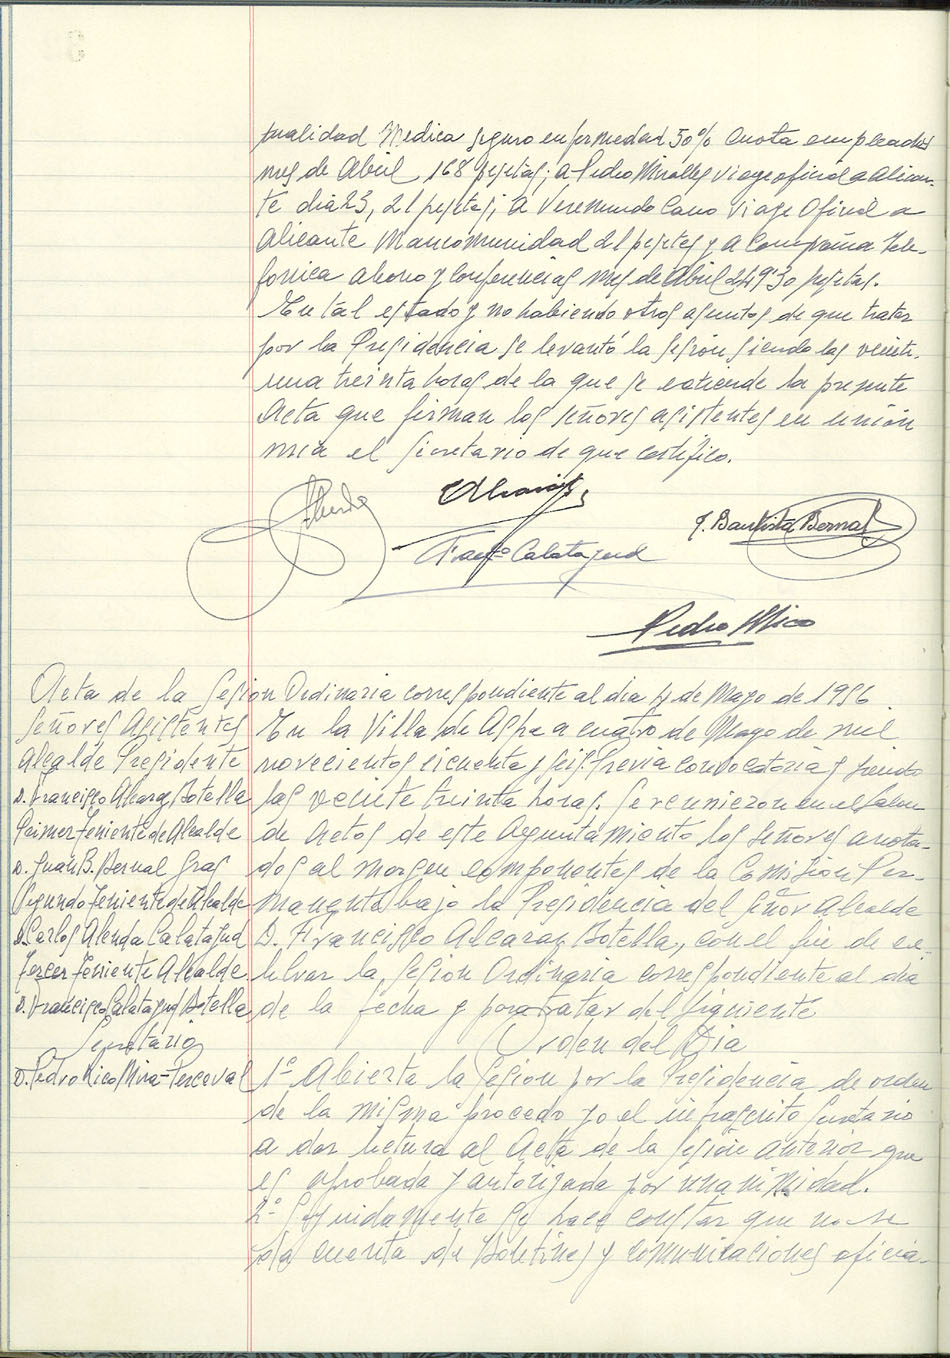 tualidad Medica seguro enfermedad 50% cuota empleados
mes de Abril 168 pesetas; a Pedro Miralles viage oficial a Alican-
te dia 23, 21 pesetas; a Veremundo Cano viage Oficial a
Alicante Mancomunidad 21 pesetas y a Compañia Tele-
fonica abono y conferencias mes de Abril 249'30 pesetas.
En tal estado y no habiendo otros asuntos de que tratar
por la Presidencia se levantó la sesión siendo las veinti-
una treinta horas de la que se extiende la presente
Acta que firman los señores asistentes en unión
mia el Secretario de que certifico.
J. Bautista Bernal
Franco Calatayud
Pedro Mico
Acta de la Sesion Ordinaria correspondiente al dia 4 de Mayo de 1956
Señores Asistentes
Alcalde Presidente
D. Francisco Alcaraz Botella
Primer Teniente de Alcalde
D. Juan B. Bernal Gras
Segundo Teniente de Alcalde
D. Carlos Alenda Calatayud
Tercer Teniente Alcalde
D. Francisco Calatayud Botella
Secretario
D. Pedro Mico Mira-Perceval
En la Villa de Aspe a cuatro de Mayo de mil
novecientos cicuenta y seis. Previa convocatoria y siendo
las veinte treinta horas. Se reunieron en el Salon
de Actos de este Ayuntamiento los señores anota-
dos al margen componentes de la Comisión Per-
manente bajo la Presidencia del Señor Alcalde
D. Francisco Alcaraz Botella, con el fin de ce-
lebrar la Sesion Ordinaria correspondiente al dia
de la fecha y para tratar del siguiente
Orden del Dia
1º Abierta la Sesion por la Presidencia de orden
de la misma procedo yo el infrascrito Secretario
a dar lectura al Acta de la sesión anterior que
es aprobada y autorizada por unanimidad.
2º Seguidamente se hace constar que no se
da cuenta de Boletines y comunicaciones oficia-